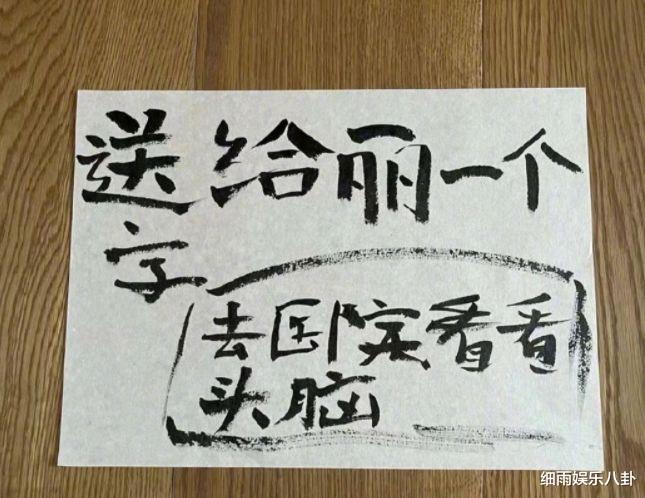 送给丽一个
字
去医院看看
头脑
细雨娱乐八卦